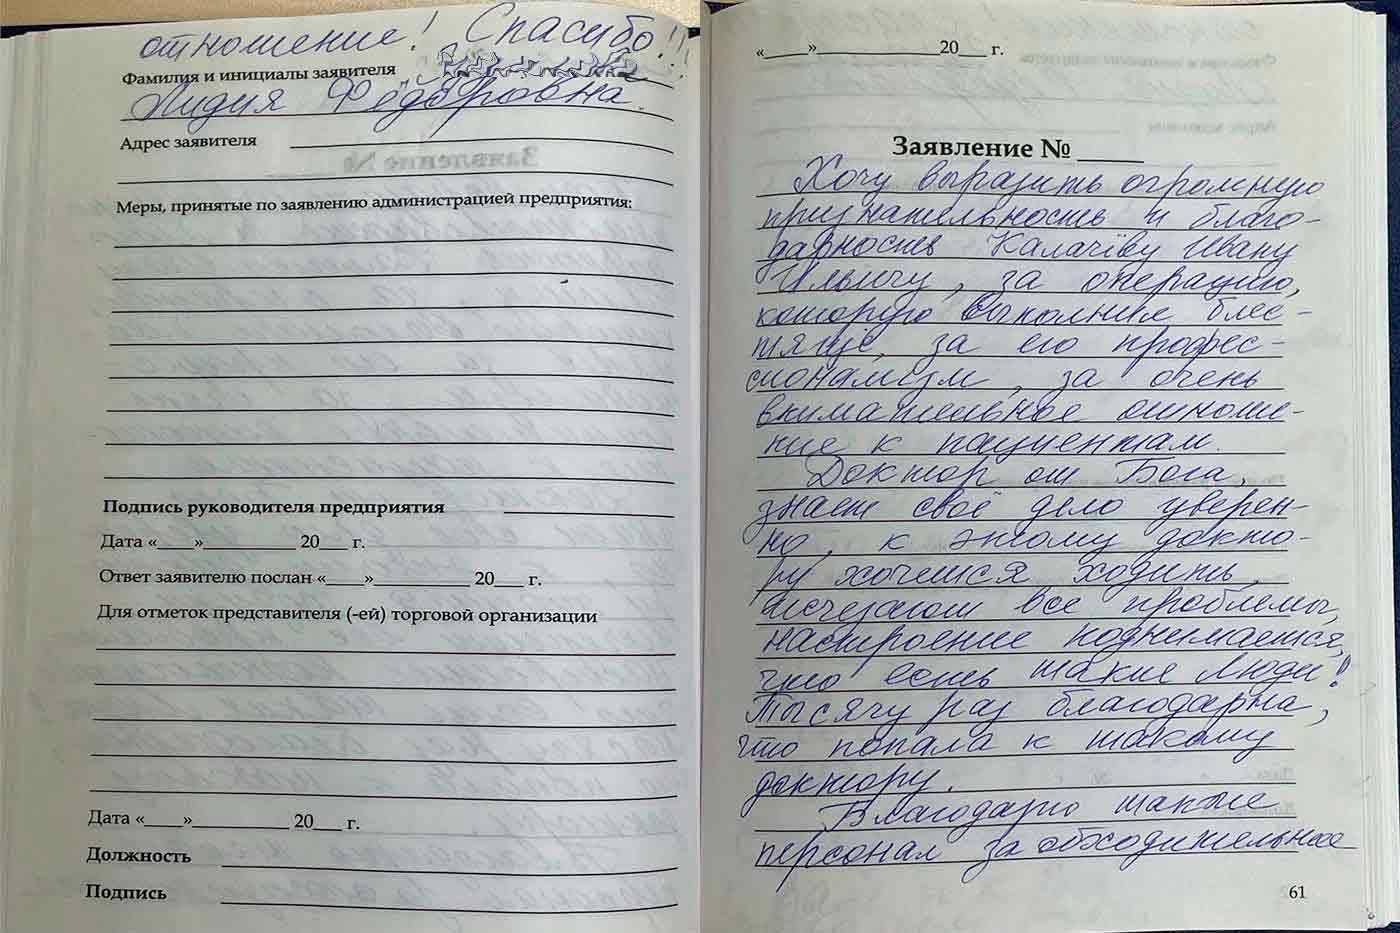 отношение! Спасибо!!!
Фамилия и инициалы заявителя
Лидия Фёдоровна.
Адрес заявителя
Меры, принятые по заявлению администрацией предприятия:
Подпись руководителя предприятия
Дата «____»__________ 20___ г.
Ответ заявителю послан «____»__________ 20___ г.
Для отметок представителя (-ей) торговой организации
Дата «____»__________ 20___ г.
Должность
Подпись
«____»____________20___ г.
Заявление № _____
Хочу выразить огромную
признательность и благо-
дарность Калачёву Ивану
Ильичу, за операцию,
которую выполнил блес-
тяще, за его профес-
сионализм, за очень
внимательное отноше-
ние к пациентам.
Доктор от Бога,
знает своё дело уверен-
но, к этому докто-
ру хочется ходить,
исчезают все проблемы,
настроение поднимается,
что есть такие люди!
Тысячу раз благодарна,
что попала к такому
доктору.
Благодарю также
персонал за обходительное
61